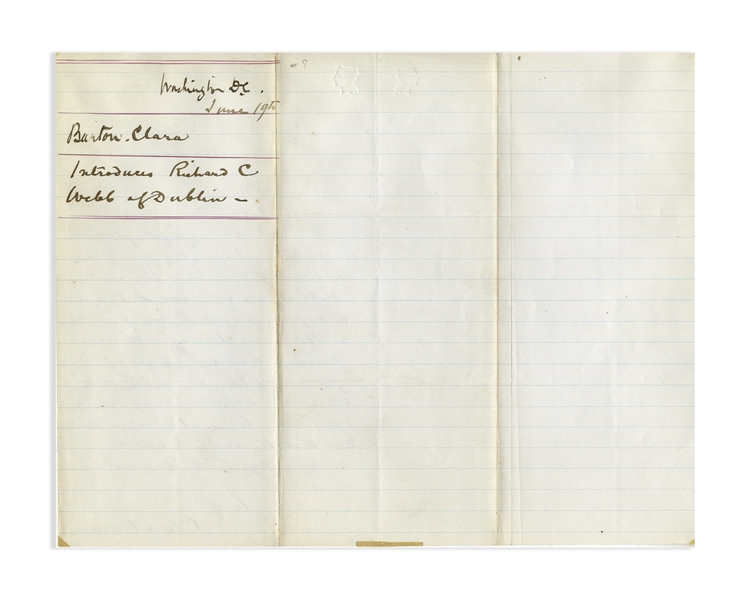 Washington D.C.
June 19th
Barton. Clara
Introduces Richard C
Webb of Dublin –